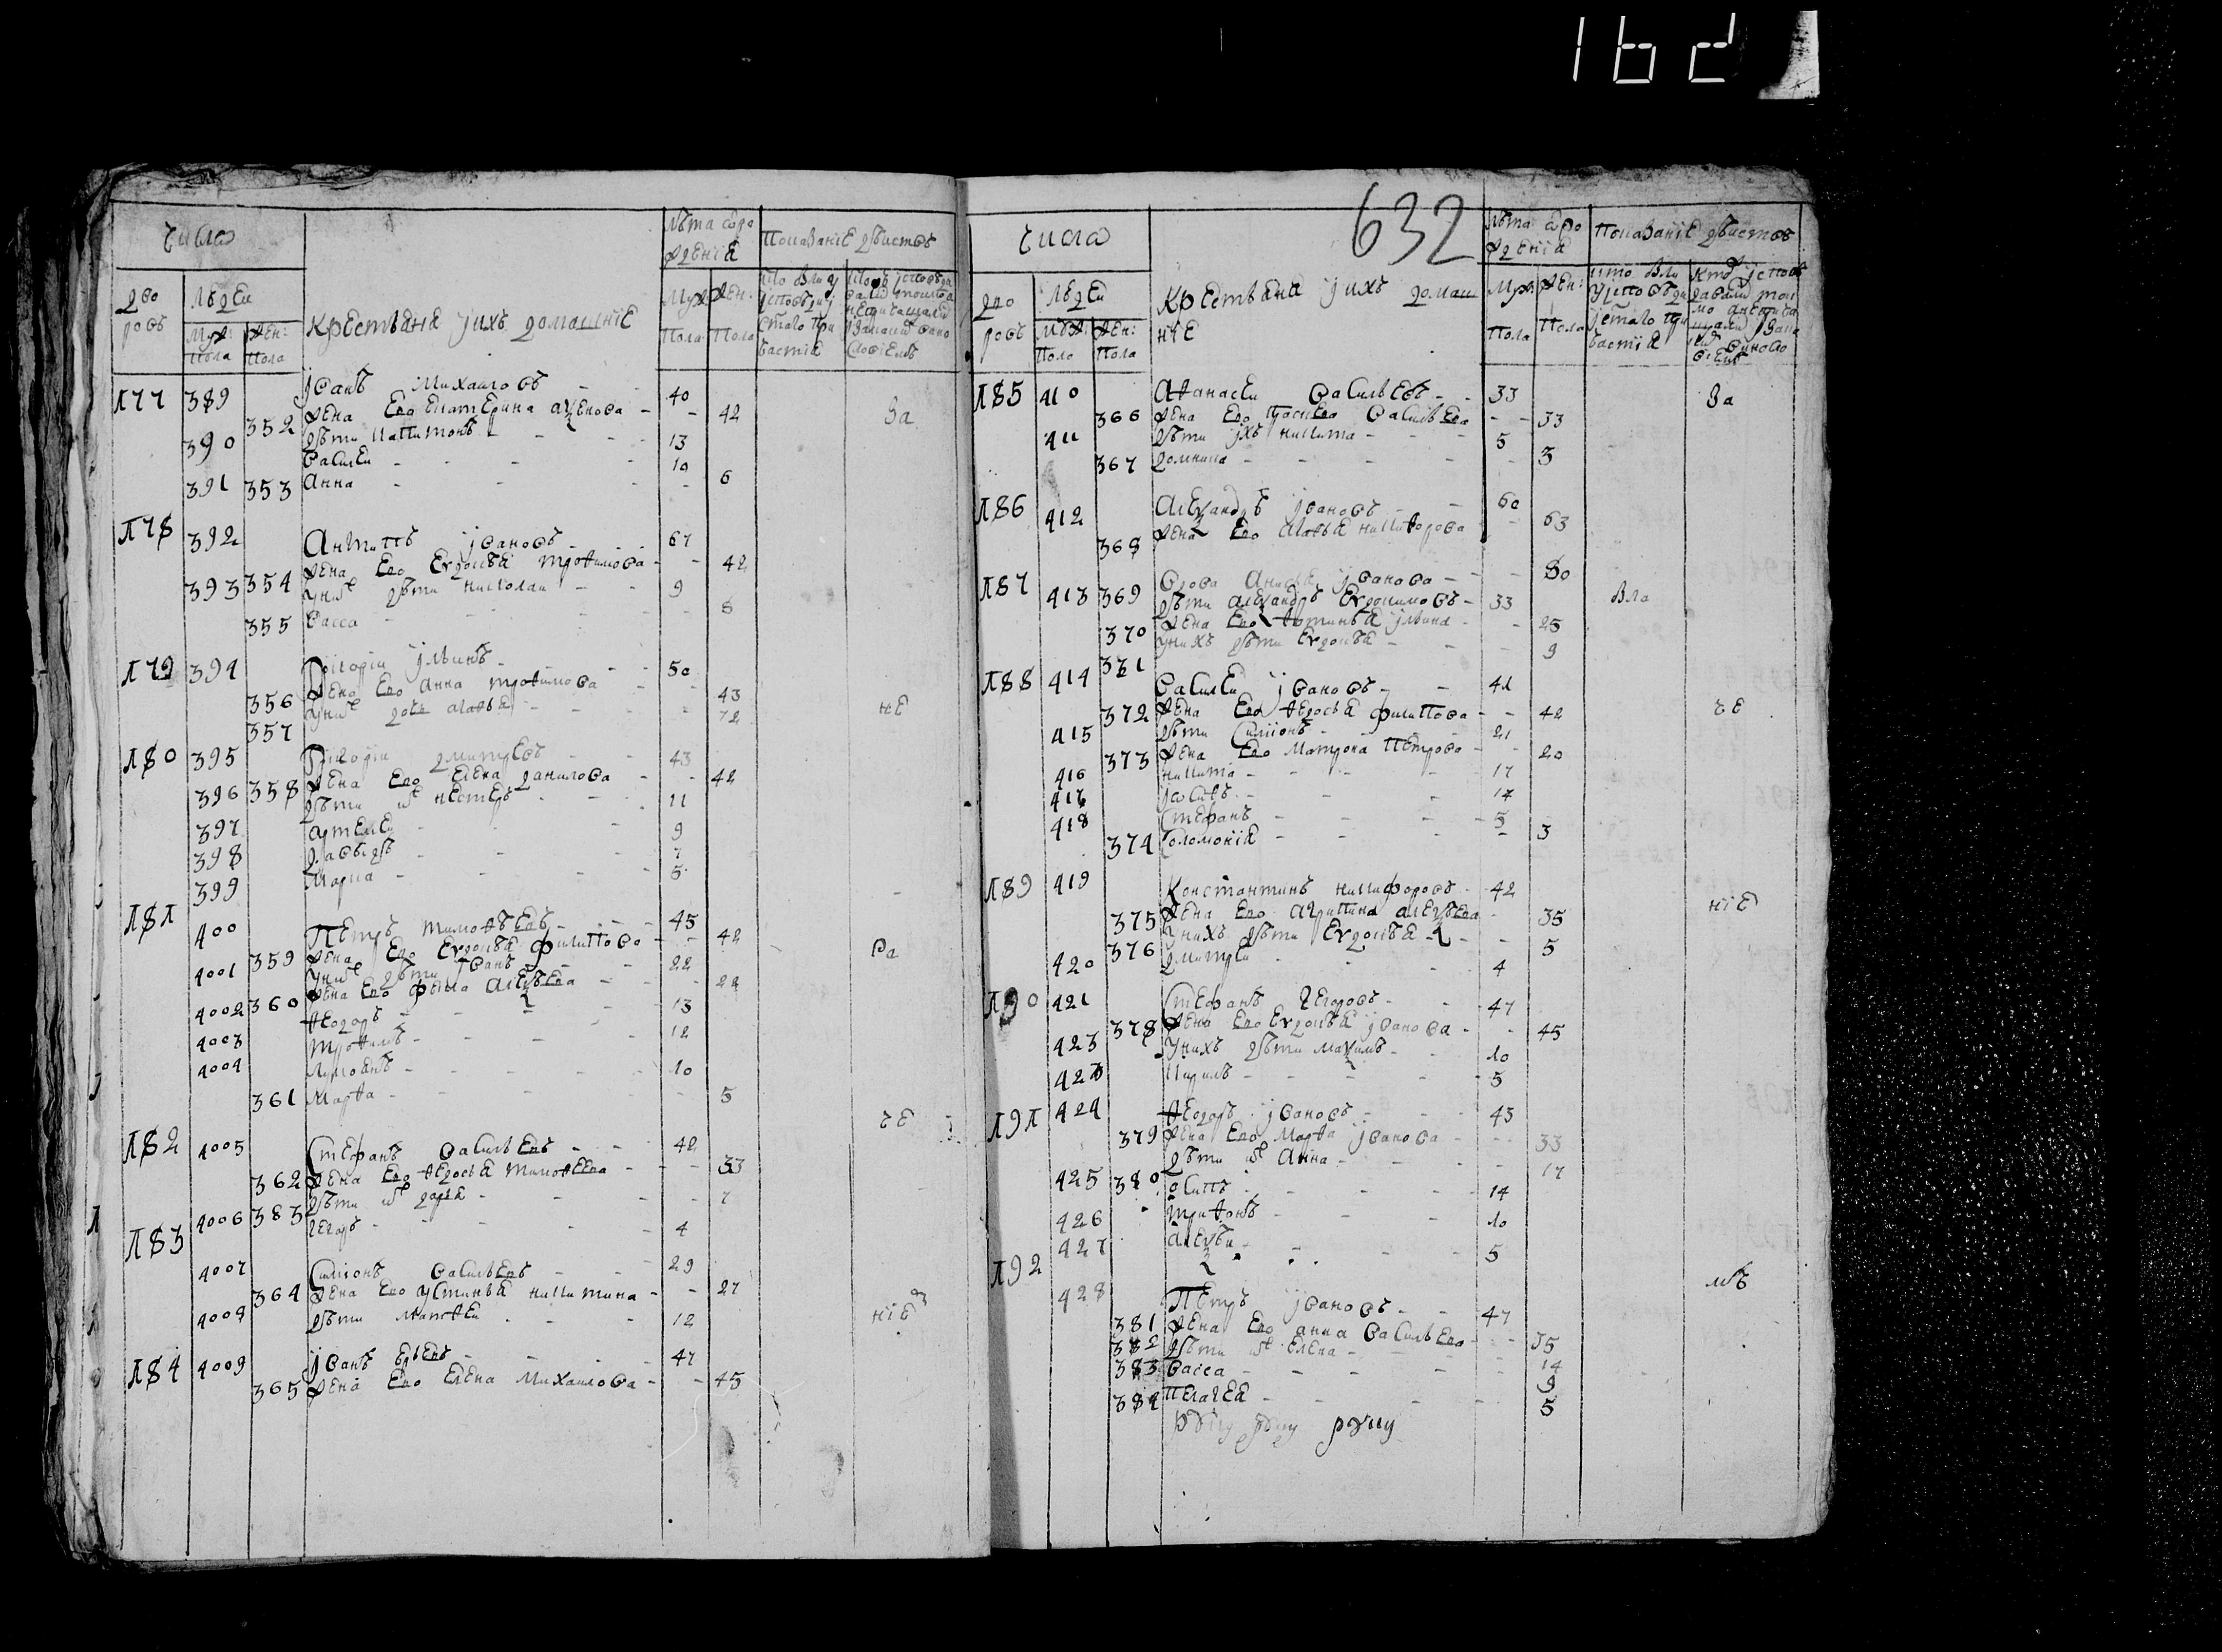 162
числа
лѣта ѿ ро
жденіѧ
показаніе дѣиствъ
дво
ровъ
людеи
муж:
пола
жен:
пола
крестьянѧ ихъ домашніе
муж:
пола
жен:
пола
177 389 Иванъ Михаиловъ - - 40
352 жена ево екатерина аѯенова - - 42 за
390 дѣти капитонъ - - - 13
василеи - - - 10
391 353 анна - - - 6
178 392 Антипъ ивановъ - - 67
354 жена ево евдокѣѧ трофимова - - 42
393 у них дѣти николаи - - 9
355 васса - - - 8
179 394 Григореи ильинъ - - - 50
356 жена ево анна трофимова - - 43
357 у них дочь агафьѧ - - - 12 не
180 395 Григореи дмитревъ - - 43
358 жена ево елена данилова - - 42
396 дѣти их нестеръ - - 11
397 артемеи - - - 9
398 давыдъ - - - 7
399 марка - - - 5
181 400 Петръ тимофѣевъ - - - 45
359 жена ево евдокѣѧ филипова - - 42 ва
4001 у них дѣти иванъ - - 22
360 жена ево фекла алеѯѣева - - 22
4002 федоръ - - - 13
4003 трофимъ - - - 12
4004 лукоянъ - - - 10
361 марфа - - - 5
че
182 4005 Стефанъ васильевъ - - 42
362 жена ево федосьѧ тимофеева - - 33
383 дѣти их дарьѧ - - - 7
4006 егоръ - - - 4
183 4007 Симіонъ васильевъ - - 29
364 жена ево устиньѧ никитина - - 27
4008 дѣти матфеи - - - 12 ніе
184 4009 Иванъ - - - 47
365 жена ево елена михаилова - - 45
632
числа
лѣта ѿ ро
жденіѧ
показаніе дѣиствъ
дво
ровъ
людеи
муж:
поло
жен:
пола
крестьянѧ ихъ домаш
ніе
муж:
пола
жен:
пола
185 410 Афанасеи васильевъ - - 33 за
366 жена ево васильева - - 33
411 дѣти ихъ никита - - - 5
367 домника - - - 3
186 412 Алеѯандръ ивановъ - - 60
368 жена ево агафьѧ никифорова - 63
187 369 вдова анисьѧ иванова - - 80
413 дѣти алеѯандръ евдокимовъ - 33 вла
370 жена ево фотиньѧ ильина - - 25
371 у нихъ дѣти евдокѣѧ - - - 9
188 414 василеи ивановъ - - 41
372 жена ево федосьѧ филипова - - 42 че
415 дѣти симіонъ - - - 21
373 жена ево матрона петрова - - 20
416 никита - - - 17
417 - - - 14
418 стефанъ - - - 5
374 соломоніѧ - - - 3
189 419 Константинъ никифоровъ - 42
375 жена ево агрипина алеѯѣева - 35 ніе
376 у нихъ дѣти евдокѣѧ - - 5
420 дмитреи - - - 4
190 421 Стефанъ егоровъ - - 47
378 жена ево евдокѣѧ иванова - - 45
423 у нихъ дѣти маѯимъ - - 10
423 кирилъ - - - 5
191 424 Федоръ ивановъ - - - 43
379 жена ево марфа иванова - - 33
380 дѣти их анна - - - 17
425 осипъ - - - 14
426 трифонъ - - - 10
427 алеѯѣи - - - 5
192 428 Петръ ивановъ - - 47 мъ
381 жена ево анна васильева - - 35
382 дѣти их елена - - - 14
383 васса - - - 9
384 пелагеѧ - - - 5